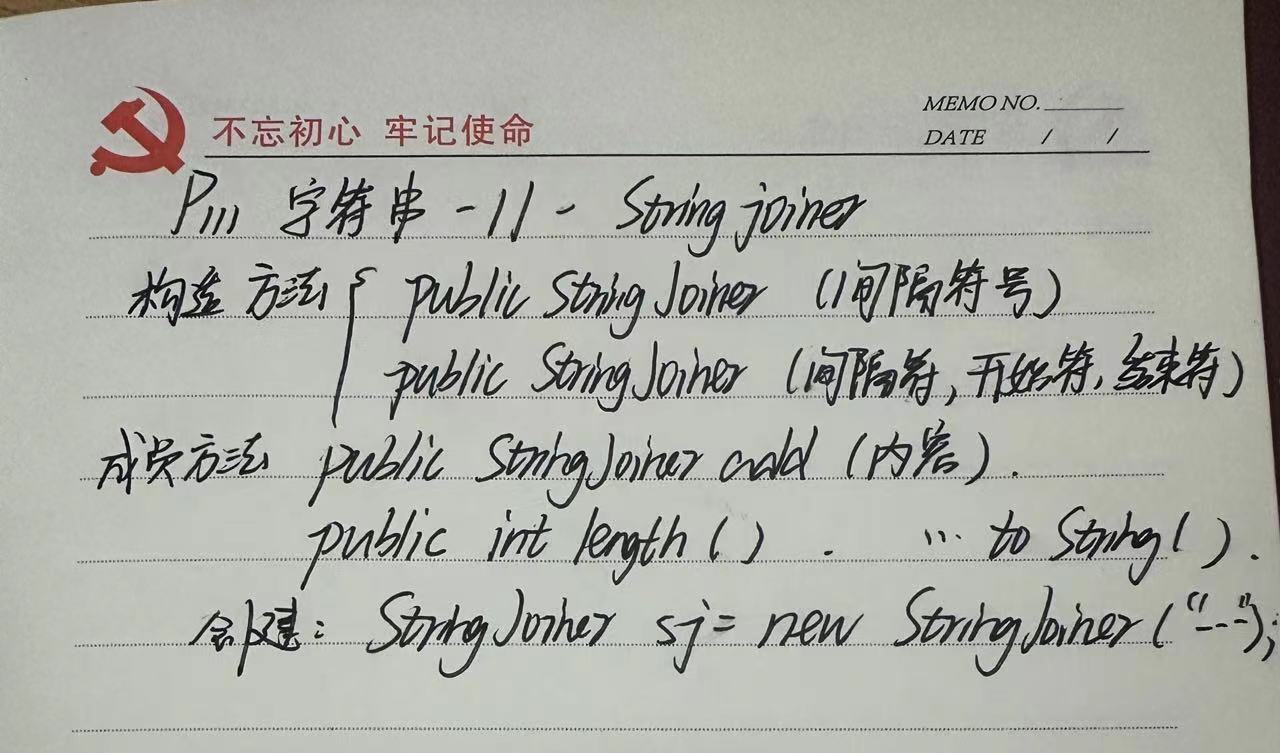 不忘初心 牢记使命
MEMO NO.
DATE / /
P111 字符串 - 11 - String joiner
构造方法 { public StringJoiner (间隔符号)
public StringJoiner (间隔符, 开始符, 结束符)
成员方法 public StringJoiner add (内容).
public int length ( ) . ... to String ( ).
创建: StringJoiner sj = new StringJoiner ("---");